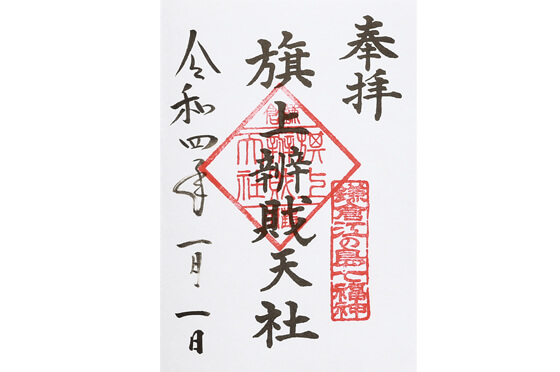 奉拝
旗上辨財天社
鎌倉江の島七福神
令和四年
一月一日